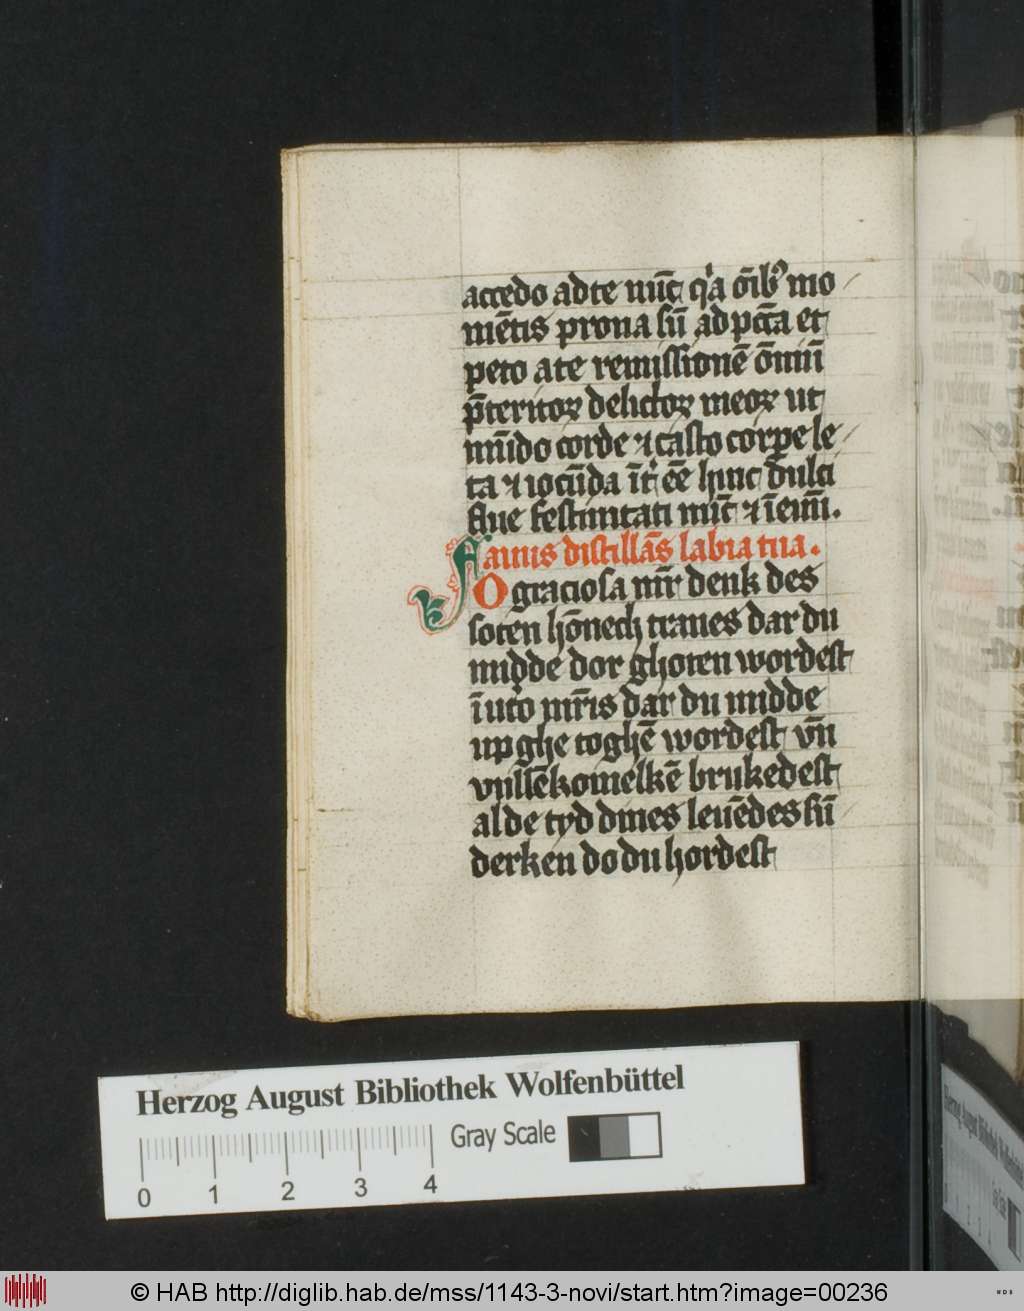 accedo ad te nu̅c qͥa o̅ibꝰ mo
me̅tis prona su̅ ad pcc̅a et
peto a te remissione̅ o̅miu̅
p̅teritoꝝ delictoꝝ meoꝝ ut
mu̅do corde ⁊ casto corꝑe le
ta ⁊ iocu̅da i̅t͛ ee̅ huic dulci
flue festiuitati mu̅c ⁊ i̅eu̅m̅.
Fauus distilla̅s labia tua.
O graciosa mr̅ denk des
soten ho̅nech traues dar du
midde dor ghoten wordest
i̅ ut͛o mr̅is dar du midde
up ghe toghe̅ wordest vn̅
vnsse̅komelke̅ brukedest
al de tyd dines leue̅des su̅
derken do du hordest
Herzog August Bibliothek Wolfenbüttel
Gray Scale
0 1 2 3 4
© HAB http://diglib.hab.de/mss/1143-3-novi/start.htm?image=00236